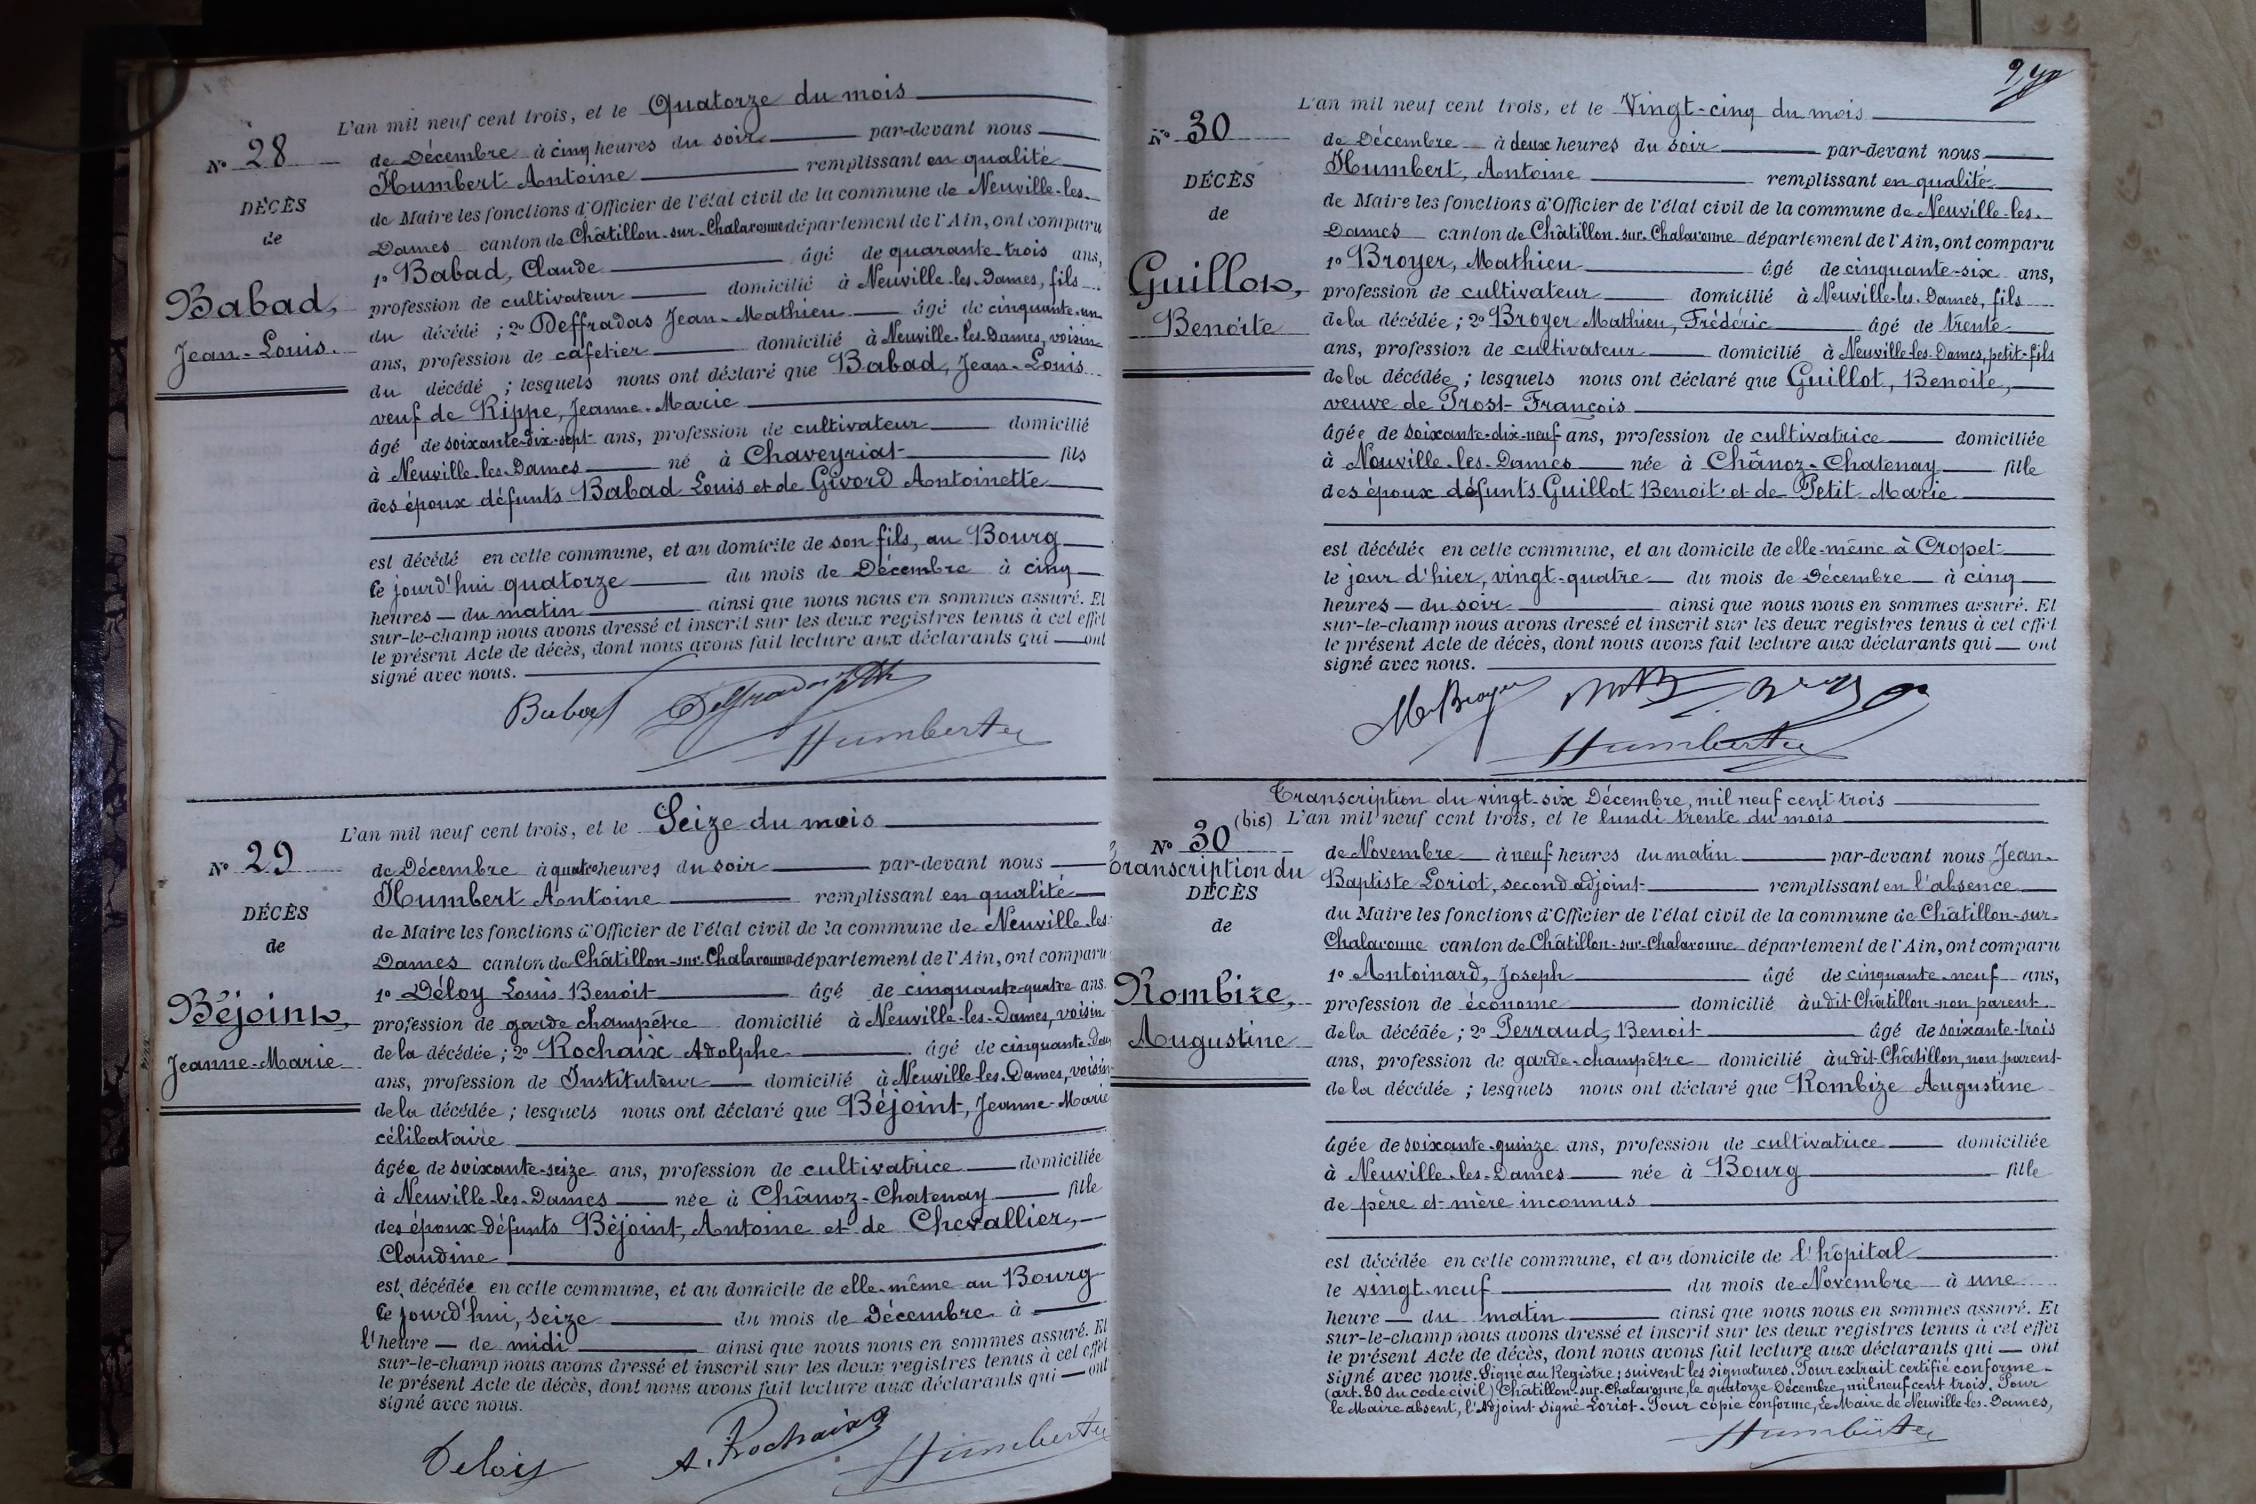 L'an mil neuf cent trois, et le Quatorze du mois
N° 28
de Décembre à cinq heures du soir par-devant nous
Humbert Antoine remplissant en qualité
DÉCÈS
de Maire les fonctions d'Officier de l'état civil de la commune de Neuville-les-
de
Dames canton de Châtillon-sur-Chalaronne département de l'Ain, ont comparu
1° Babad, Claude âgé de quarante-trois ans,
Babad,
profession de cultivateur domicilié à Neuville-les-Dames, fils
du décédé ; 2° Deffradas Jean-Mathieu âgé de cinquante-un
Jean-Louis.
ans, profession de cafetier domicilié à Neuville-les-Dames, voisin
du décédé ; lesquels nous ont déclaré que Babad, Jean-Louis
veuf de Rippe, Jeanne-Marie
âgé de soixante-dix-sept ans, profession de cultivateur domicilié
à Neuville-les-Dames né à Chaveyriat fils
des époux défunts Babad Louis et de Givord Antoinette
est décédé en cette commune, et au domicile de son fils, au Bourg
le jourd'hui quatorze du mois de Décembre à cinq
heures du matin ainsi que nous nous en sommes assuré. Et
sur-le-champ nous avons dressé et inscrit sur les deux registres tenus à cet effet
le présent Acte de décès, dont nous avons fait lecture aux déclarants qui ont
signé avec nous.
Babad Deffradas
Humbert
L'an mil neuf cent trois, et le Seize du mois
N° 29
de Décembre à quatre heures du soir par-devant nous
Humbert Antoine remplissant en qualité
DÉCÈS
de Maire les fonctions d'Officier de l'état civil de la commune de Neuville-les
de
Dames canton de Châtillon-sur-Chalaronne département de l'Ain, ont comparu
1° Déloy Louis Benoit âgé de cinquante-quatre ans
Béjoint,
profession de garde champêtre domicilié à Neuville-les-Dames, voisin
de la décédée ; 2° Rochaix Adolphe âgé de cinquante-deux
Jeanne-Marie
ans, profession de Instituteur domicilié à Neuville-les-Dames, voisin
de la décédée ; lesquels nous ont déclaré que Béjoint, Jeanne-Marie
célibataire
âgée de soixante-seize ans, profession de cultivatrice domiciliée
à Neuville-les-Dames née à Chânoz-Chatenay fille
des époux défunts Béjoint, Antoine et de Chevallier,
Claudine
est décédée en cette commune, et au domicile de elle-même au Bourg
le jourd'hui, seize du mois de Décembre à
l'heure de midi ainsi que nous nous en sommes assuré. Et
sur-le-champ nous avons dressé et inscrit sur les deux registres tenus à cet effet
le présent Acte de décès, dont nous avons fait lecture aux déclarants qui ont
signé avec nous.
Deloy A. Rochaix Humbert
L'an mil neuf cent trois, et le Vingt-cinq du mois
N° 30
de Décembre à deux heures du soir par-devant nous
Humbert, Antoine remplissant en qualité
DÉCÈS
de Maire les fonctions d'Officier de l'état civil de la commune de Neuville-les-
de
Dames canton de Châtillon-sur-Chalaronne département de l'Ain, ont comparu
1° Broyer, Mathieu âgé de cinquante-six ans,
Guillot,
profession de cultivateur domicilié à Neuville-les-Dames, fils
de la décédée ; 2° Broyer Mathieu, Frédéric âgé de trente
Benoite
ans, profession de cultivateur domicilié à Neuville-les-Dames, petit-fils
de la décédée ; lesquels nous ont déclaré que Guillot, Benoite,
veuve de Prost François
âgée de soixante-dix-neuf ans, profession de cultivatrice domiciliée
à Neuville-les-Dames née à Chânoz-Chatenay fille
des époux défunts Guillot Benoit et de Petit Marie
est décédée en cette commune, et au domicile de elle-même à Cropet
le jour d'hier, vingt-quatre du mois de Décembre à cinq
heures du soir ainsi que nous nous en sommes assuré. Et
sur-le-champ nous avons dressé et inscrit sur les deux registres tenus à cet effet
le présent Acte de décès, dont nous avons fait lecture aux déclarants qui ont
signé avec nous.
M Broyer
Humbert
Transcription du vingt-six Décembre, mil neuf cent trois
N° 30 (bis) L'an mil neuf cent trois, et le lundi trente du mois
de Novembre à neuf heures du matin par-devant nous Jean-
Transcription du
Baptiste Loriot, second adjoint remplissant en l'absence
DÉCÈS
du Maire les fonctions d'Officier de l'état civil de la commune de Châtillon-sur-
de
Chalaronne canton de Châtillon-sur-Chalaronne département de l'Ain, ont comparu
1° Antoinard, Joseph âgé de cinquante-neuf ans,
Rombize,
profession de économe domicilié audit Châtillon non parent
de la décédée ; 2° Perraud, Benoit âgé de soixante-trois
Augustine
ans, profession de garde-champêtre domicilié audit Châtillon, non parent
de la décédée ; lesquels nous ont déclaré que Rombize Augustine
âgée de soixante-quinze ans, profession de cultivatrice domiciliée
à Neuville-les-Dames née à Bourg fille
de père et mère inconnus
est décédée en cette commune, et au domicile de l'hôpital
le vingt-neuf du mois de Novembre à une
heure du matin ainsi que nous nous en sommes assuré. Et
sur-le-champ nous avons dressé et inscrit sur les deux registres tenus à cet effet
le présent Acte de décès, dont nous avons fait lecture aux déclarants qui ont
signé avec nous. Signé au Registre : suivent les signatures. Pour extrait certifié conforme
(art. 80 du code civil) Châtillon-sur-Chalaronne, le quatorze Décembre, mil neuf cent trois. Pour
le Maire absent, l'Adjoint signé Loriot. Pour copie conforme, le Maire de Neuville-les-Dames,
Humbert